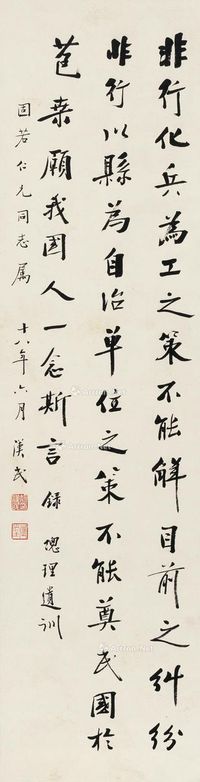 非行化兵為工之策不能解目前之糾紛
非行以縣為自治單位之策不能奠民國於
苞桑願我國人一念斯言 錄 總理遺訓
固若仁兄同志屬
十八年六月 漢民